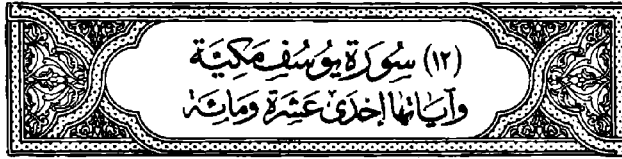 (١٢) سُورَة يُوسُف مَكِيَّة
وَآيَاتُهَا إِحْدَىٰ عَشْرَة وَمَائَة